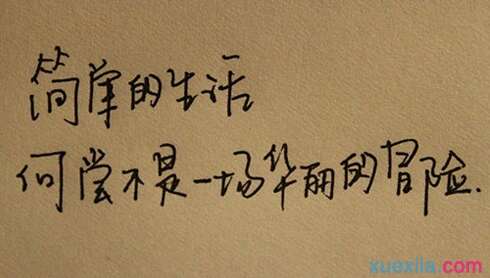 简单的生活
何尝不是一场华丽的冒险.
xuexila.com